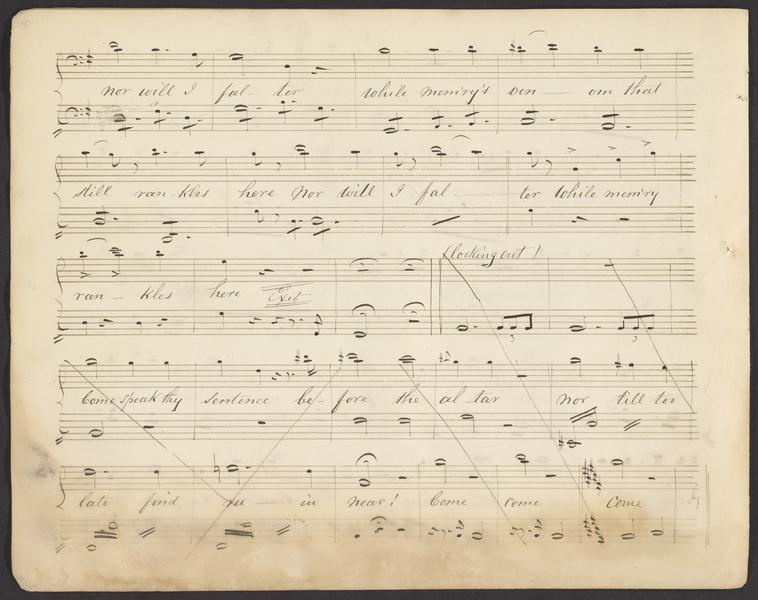 nor will I fal - ter while mem'ry's ven — om that
still ran - kles here Nor will I fal — ter while mem'ry
(looking out)
ran — kles here Exit
3 3
Come speak thy sentence be - fore the al - tar nor till too
late find ru — in near! Come come come